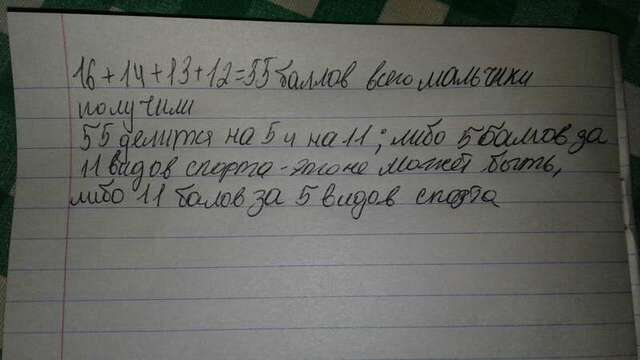 16+14+13+12=55 баллов всего мальчики
получили
55 делится на 5 и на 11; либо 5 балов за
11 видов спорта - это не может быть,
либо 11 балов за 5 видов спорта